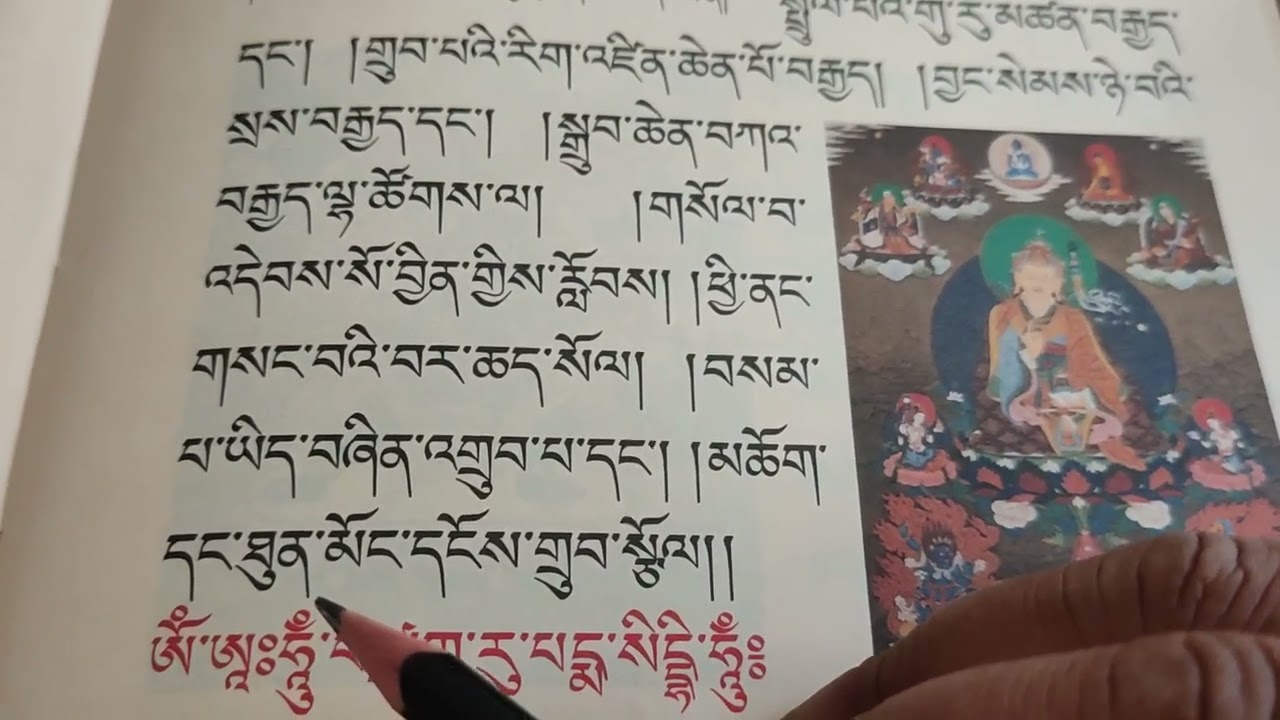 སྤྲུལ་པའི་གུ་རུ་མཚན་བརྒྱད་
དང་། །གྲུབ་པའི་རིག་འཛིན་ཆེན་པོ་བརྒྱད། །བྱང་སེམས་ཉེ་བའི་
སྲས་བརྒྱད་དང་། །སྒྲུབ་ཆེན་བཀའ་
བརྒྱད་ལྷ་ཚོགས་ལ། །གསོལ་བ་
འདེབས་སོ་བྱིན་གྱིས་རློབས། །ཕྱི་ནང་
གསང་བའི་བར་ཆད་སོལ། །བསམ་
པ་ཡིད་བཞིན་འགྲུབ་པ་དང་། །མཆོག་
དང་ཐུན་མོང་དངོས་གྲུབ་སྩོལ།།
ཨོཾ་ཨཱཿཧཱུྂ་ གུ་རུ་པདྨ་སིདྡྷི་ཧཱུྂ༔